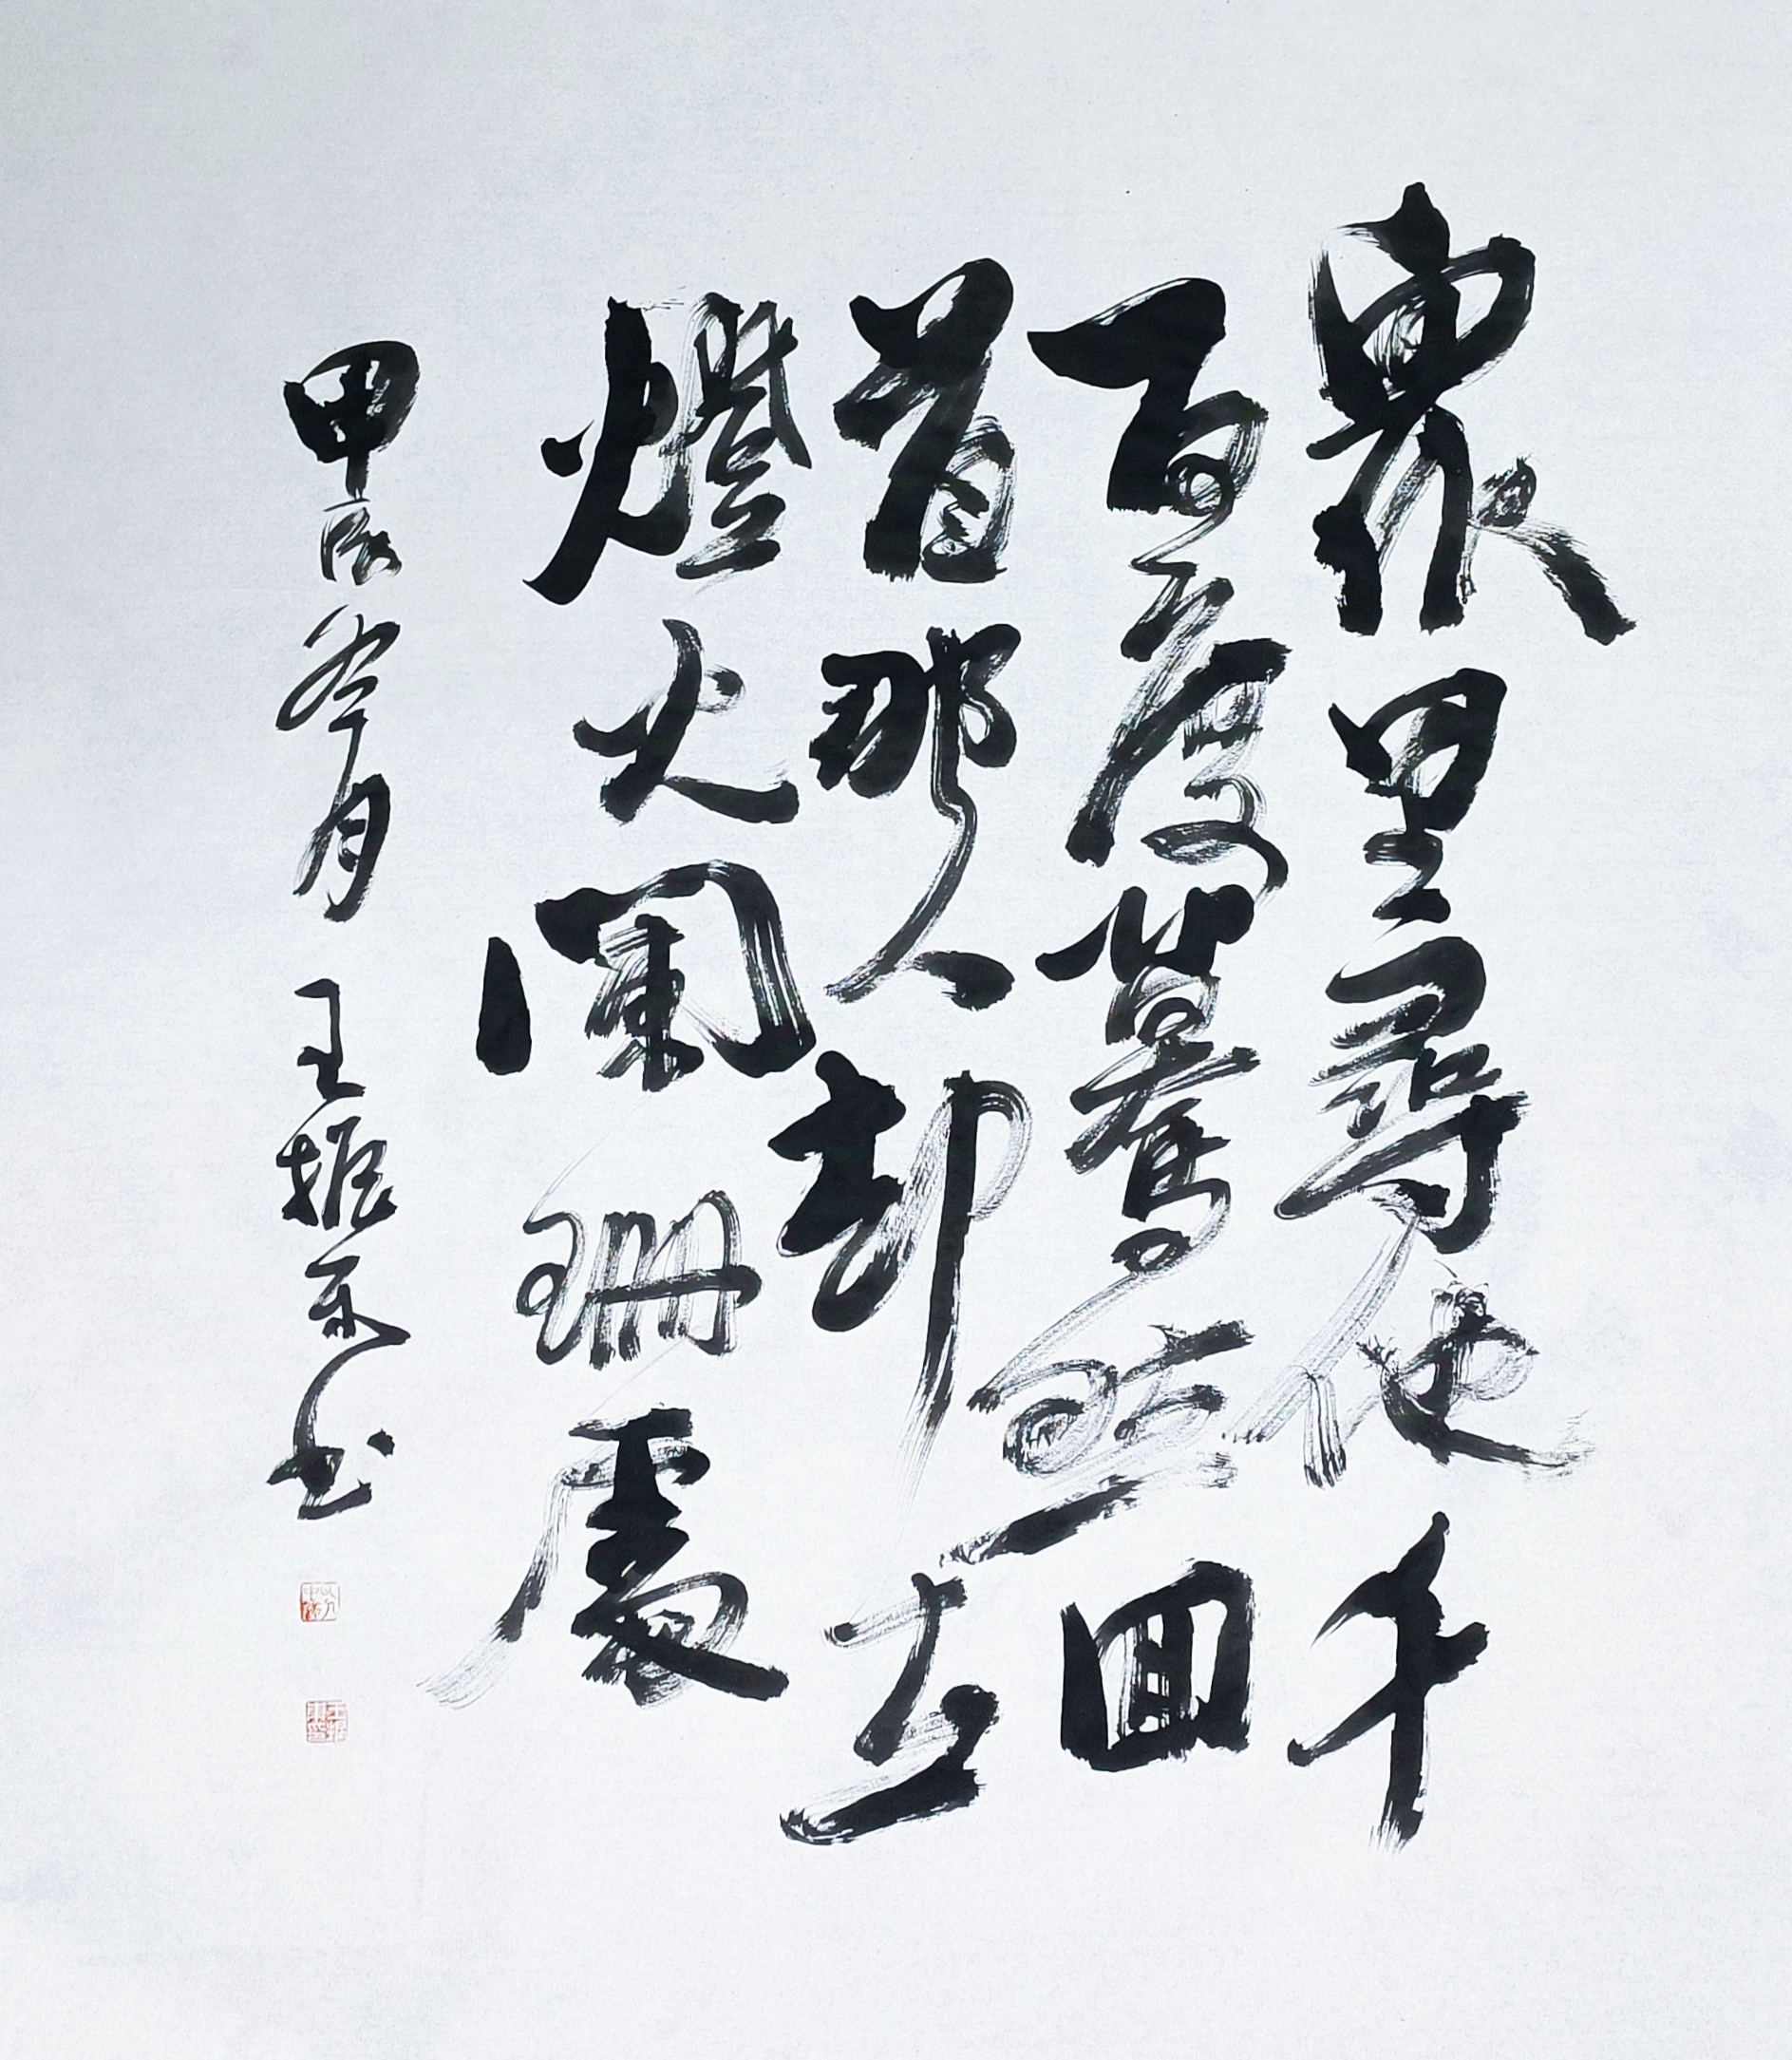 衆里尋他千
百度驀然回
首那人却在
燈火闌珊處
甲辰月 王振东书